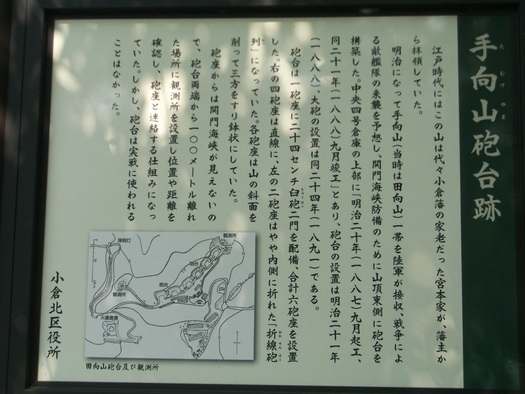 手向山砲台跡
たむけやま
江戸時代にはこの山は代々小倉藩の家老だった宮本家が、藩主か
ら拝領していた。
明治になって手向山(当時は田向山)一帯を陸軍が接収、戦争によ
る敵艦隊の来襲を予想し、関門海峡防備のために山頂東側に砲台を
構築した。中央四号倉庫の上部に「明治二十年(一八八七)九月起工、
同二十一年(一八八八)九月竣工」とあり、砲台の設置は明治二十一年
(一八八八)、大砲の設置は同二十四年(一八九一)である。
砲台は一砲座に二十四センチ臼砲二門を配備、合計六砲座を設置
した。右の四砲座は直線に、左の二砲座はやや内側に折れた「折線砲
列」になっていた。各砲座は山の斜面を
削って三方をすり鉢状にしていた。
砲座からは関門海峡が見えないの
で、砲台両端から一〇〇メートル離れ
た場所に観測所を設置し位置や距離を
確認し、砲座と連絡する仕組みになっ
ていた。しかし、砲台は実戦に使われる
ことはなかった。
観測所
砲台
観測所
火薬倉庫
田向山砲台及び観測所
小倉北区役所